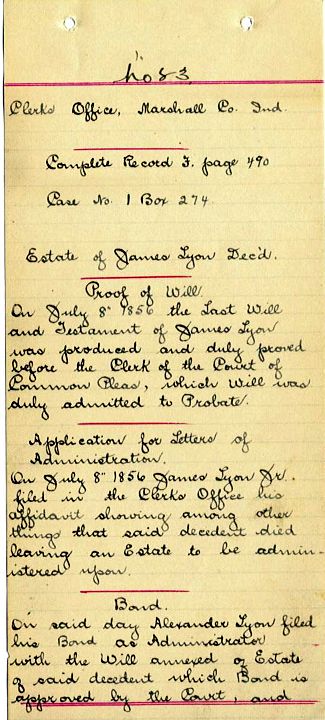 No 83
Clerks Office, Marshall Co. Ind.
Complete Record F. page 490
Case No. 1 Box 274
Estate of James Lyon Dec'd.
Proof of Will
On July 8" 1856 the Last Will
and Testament of James Lyon
was produced and duly proved
before the Clerk of the Court of
Common Pleas, which Will was
duly admitted to Probate.
Application for Letters of
Administration.
On July 8" 1856 James Lyon Jr.
filed in the Clerks Office his
affidavit showing among other
things that said decedent died
leaving an Estate to be admin-
istered upon.
Bond.
On said day Alexander Lyon filed
his Bond as Administrator
with the Will annexed of Estate
of said decedent which Bond is
approved by the Court, and